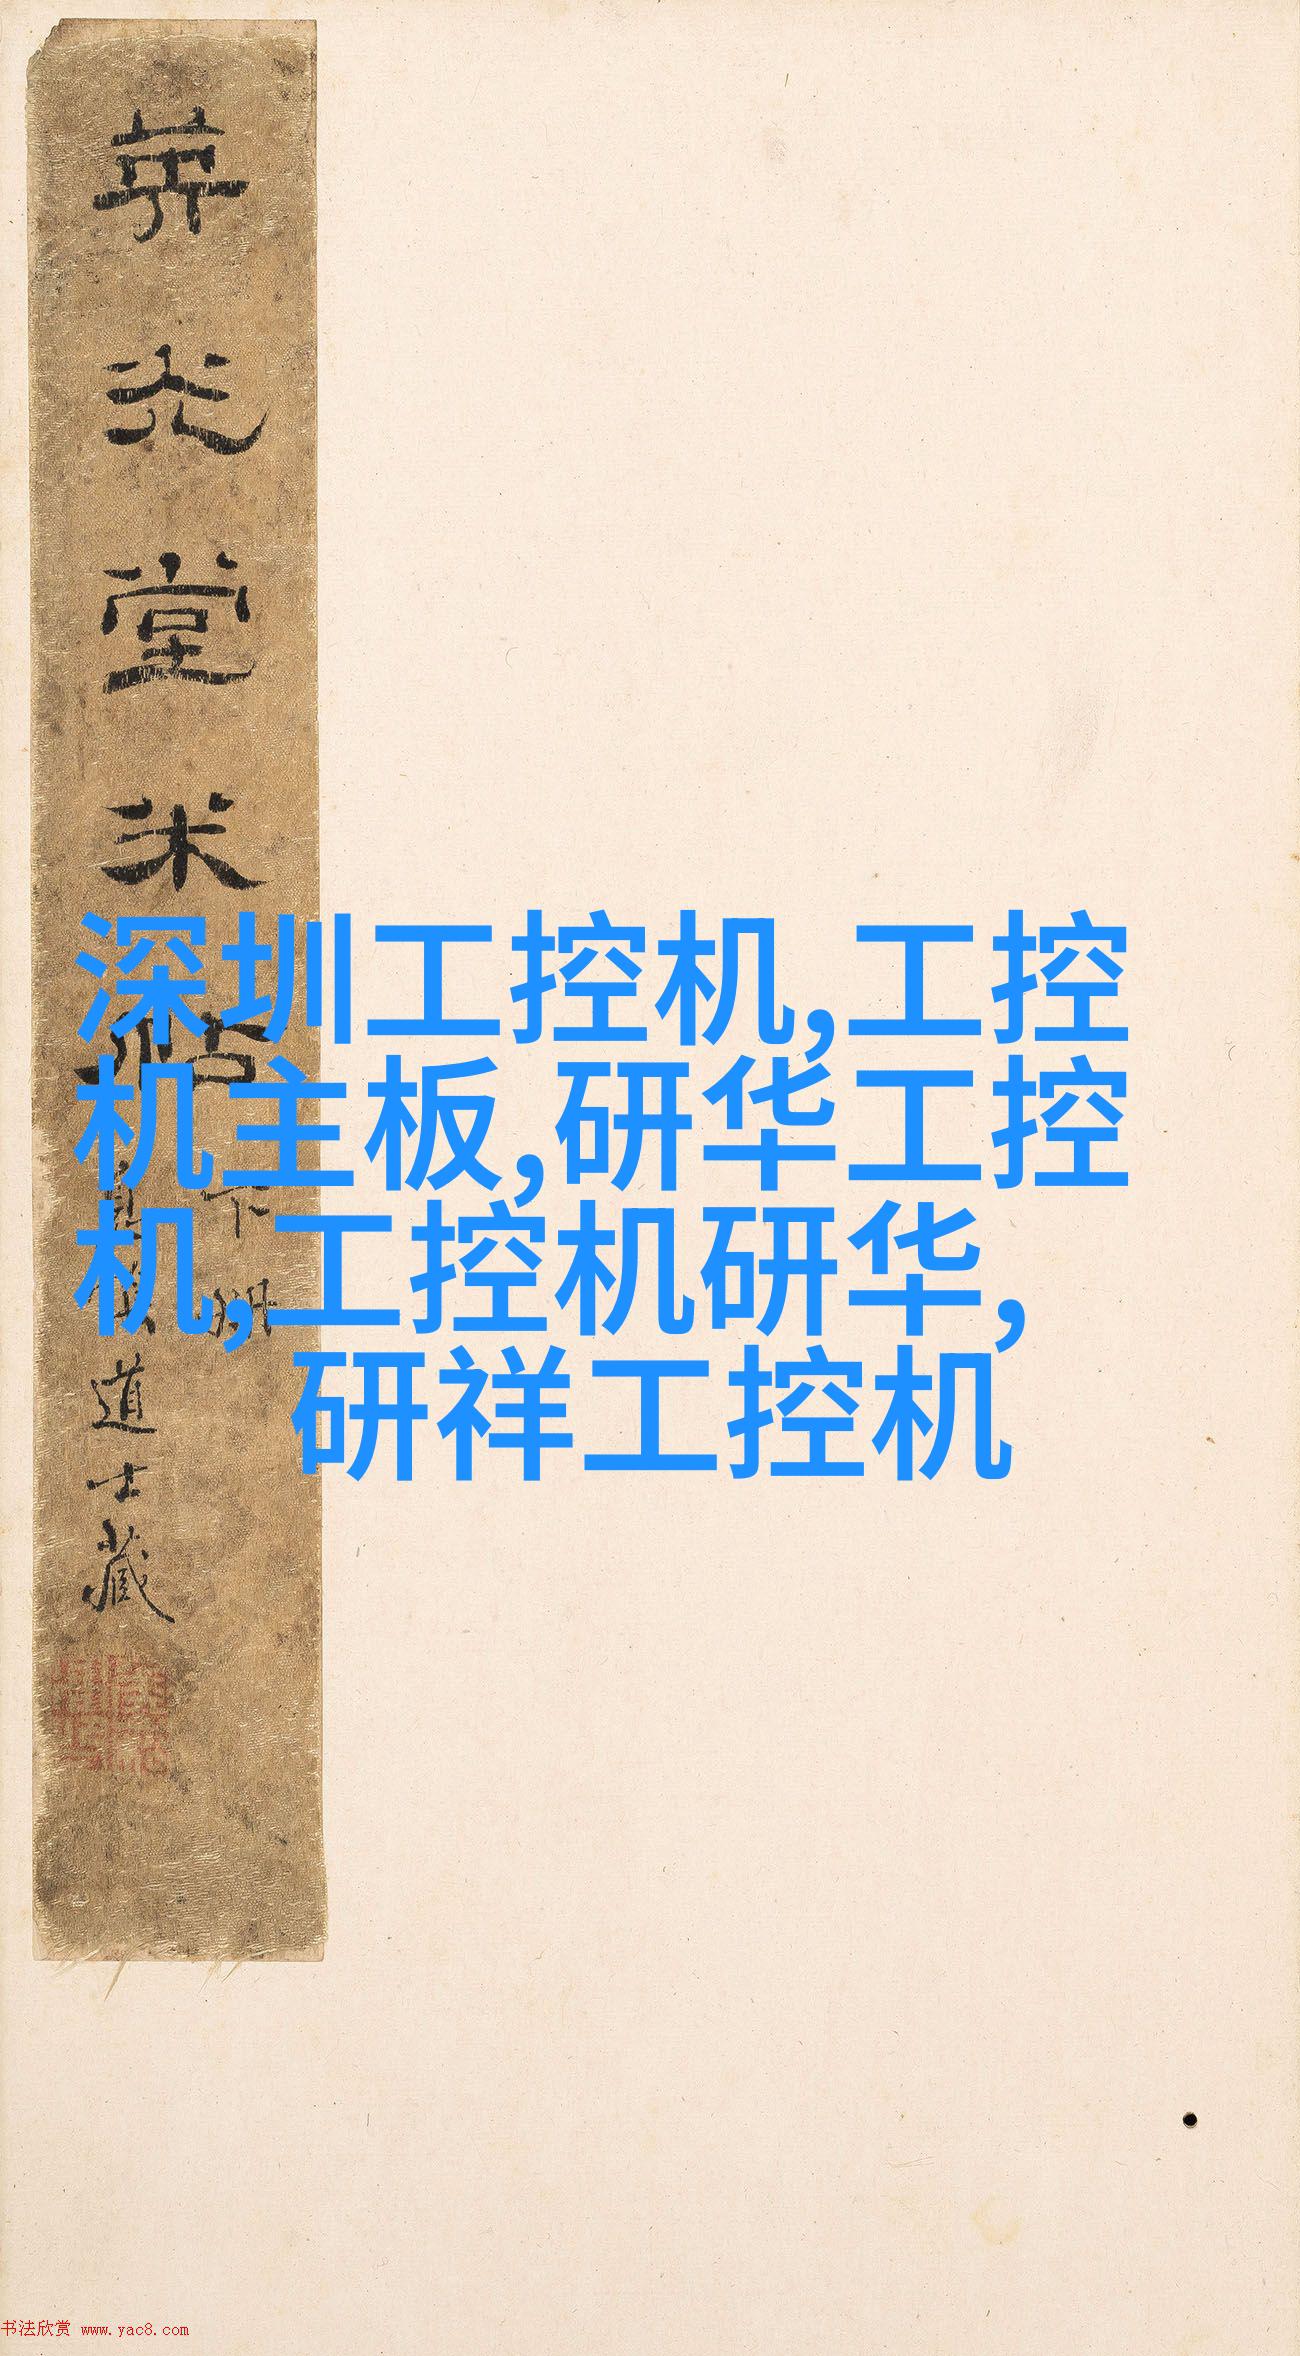 英光堂米帖
下冊
道士藏
深圳工控机,工控
机主板,研华工控
机,工控机研华,
研祥工控机
书法欣赏 www.yac8.com